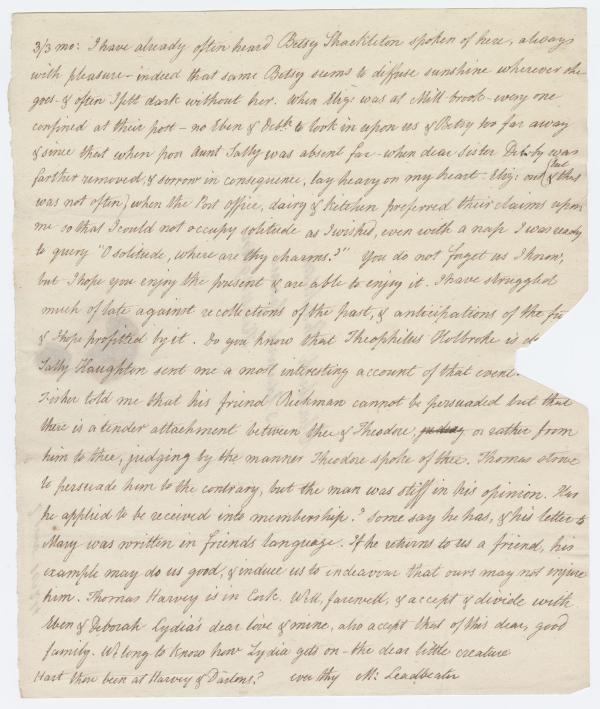 3/3 mo: I have already often heard Betsy Shackleton spoken of here, always
with pleasure - indeed that same Betsy seems to diffuse sunshine wherever she
goes - & often I felt dark without her. When Eliz: was at Mill brook - every one
confined at their post - no Eben & Debh. to look in upon us & Betsy too far away
& since that when poor Aunt Sally was absent far - when dear sister Debby was
farther removed, & sorrow in consequence, lay heavy on my heart - Eliz: out (but this
was not often) when the Post office, dairy & kitchen preferred their claims upon
me so that I could not occupy solitude as I wished, even with a nap I was ready
to query "O solitude, where are thy charms?" You do not forget us I know,
but I hope you enjoy the present & are able to enjoy it. I have struggled
much of late against recollections of the past, & anticipations of the fu
& I hope profitted by it. Do you know that Theophilus Holbroke is d
Sally Haughton sent me a most interesting account of that event.
Fisher told me that his friend Beekman cannot be persuaded but that
there is a tender attachment between thee & Theodore, or rather from
him to thee, judging by the manner Theodore spoke of thee. Thomas strove
to persuade him to the contrary, but the man was stiff in his opinion. Has
he applied to be received into membership? some say he has, & his letter to
Mary was written in friends language. If he returns to us a friend, his
example may do us good, & induce us to endeavour that ours may not injure
him. Thomas Harvey is in Cork. Well, farewell, & accept & divide with
Eben & Deborah Lydia's dear love & mine, also accept that of this dear, good
family. We long to know how Lydia gets on - the dear little creature
Hast thou been at Harvey & Darton's? ever thy M: Leadbeater